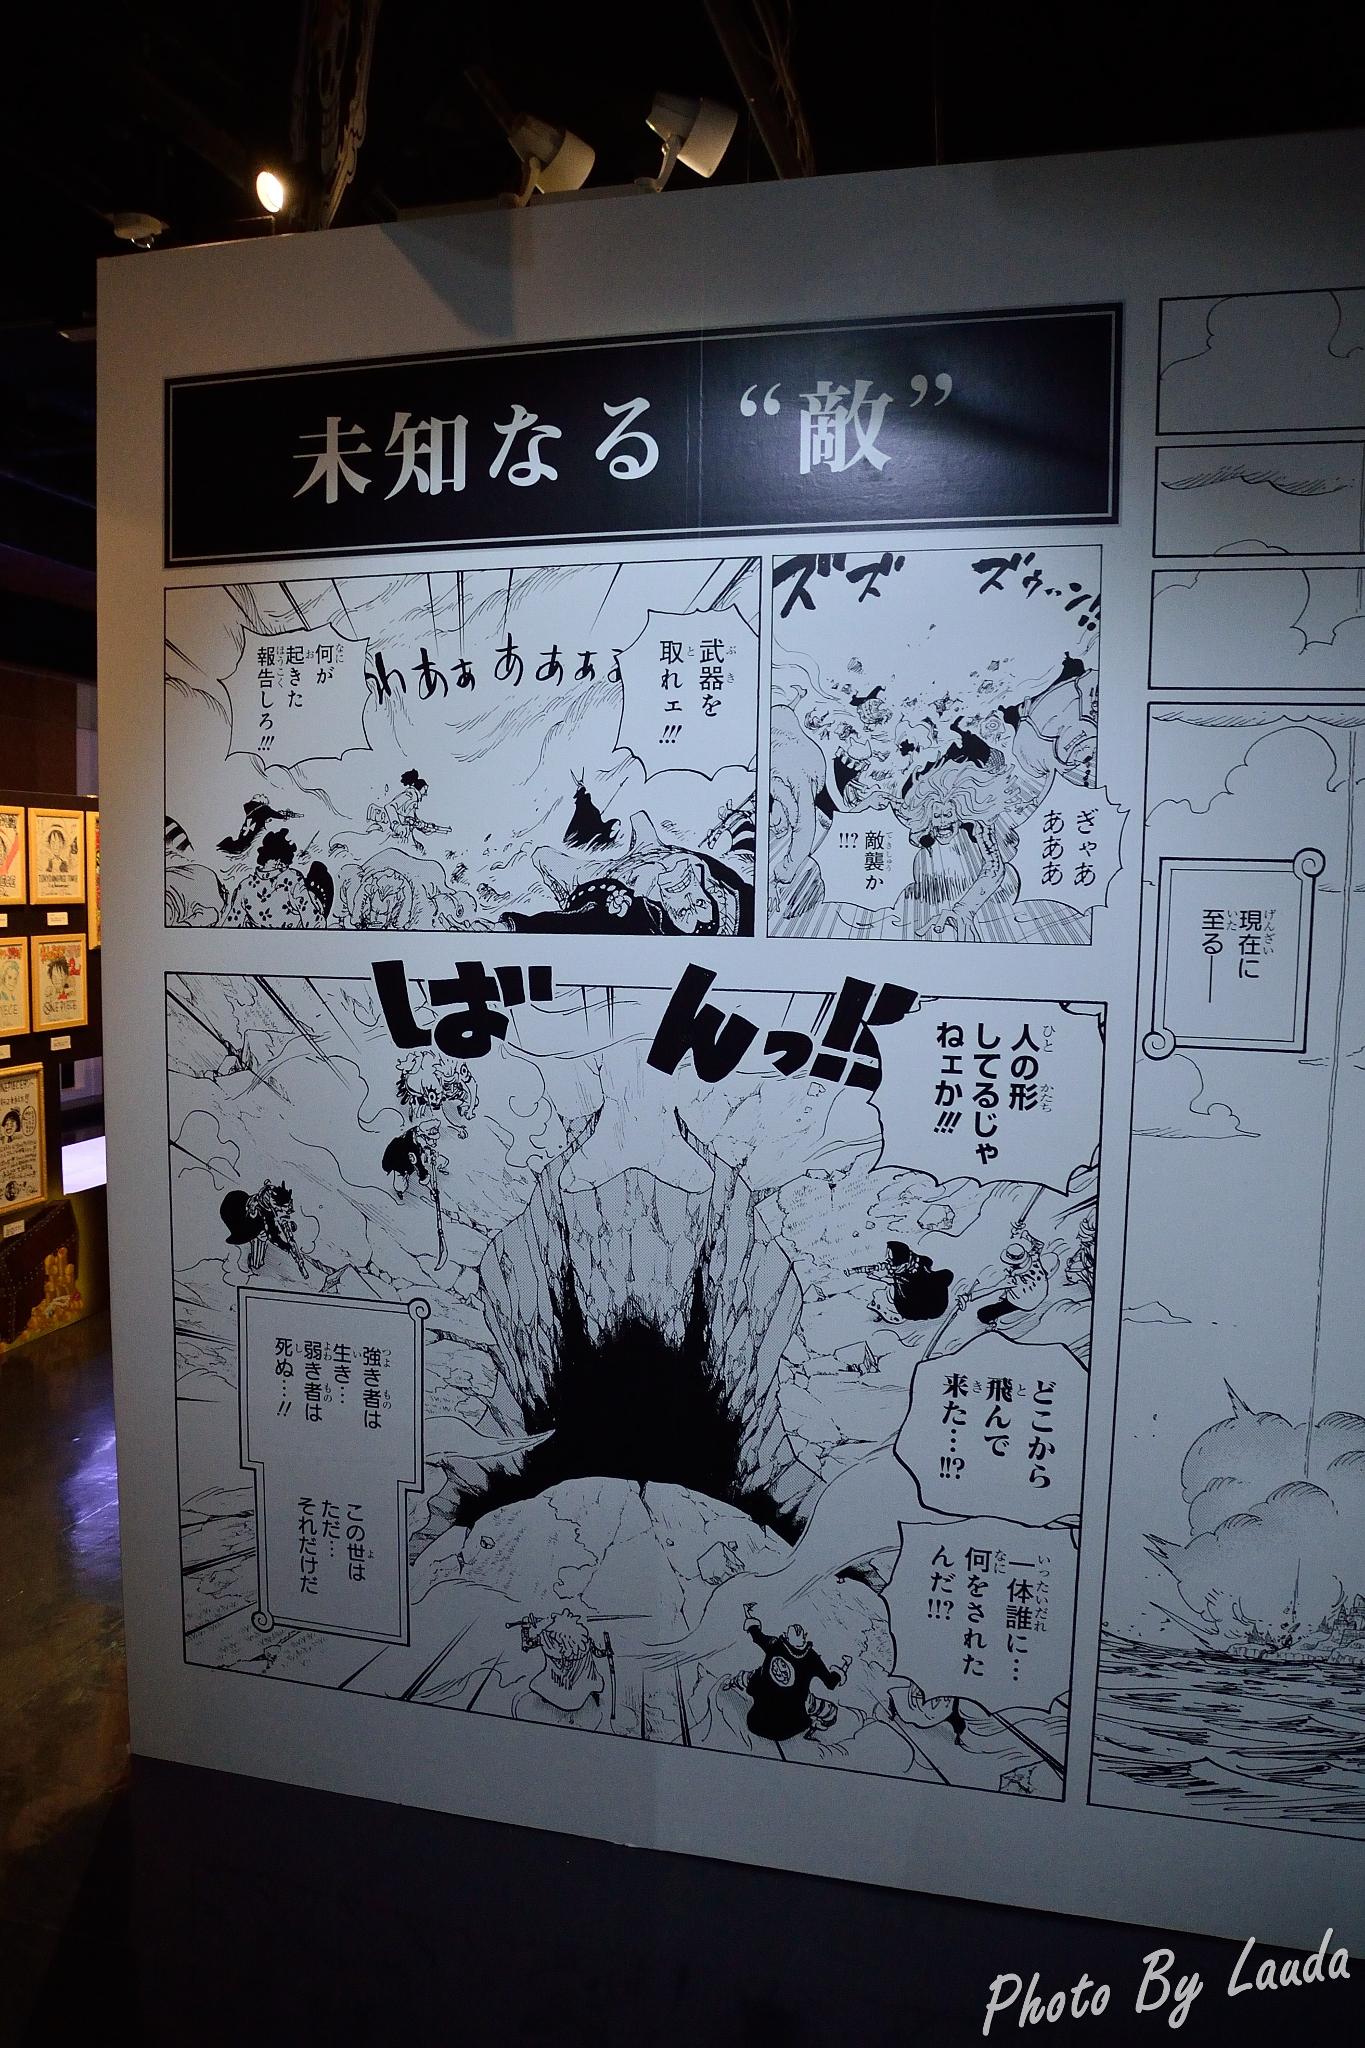 未知なる“敵”
現在に
至る──
ズズ ズゥゥン!!
ぎゃあ
あああ
敵襲か
!!?
武器を
取れェ!!!
わあぁあぁぁぁ
何が
起きた
報告しろ!!!
ばんっ!!
人の形
してるじゃ
ねェか!!!
どこから
飛んで
来た…!!?
一体誰に…
何をされた
んだ!!?
強き者は
生き…
弱き者は
死ぬ…!!
この世は
ただ…
それだけだ
ONE PIECE
Photo By Lauda